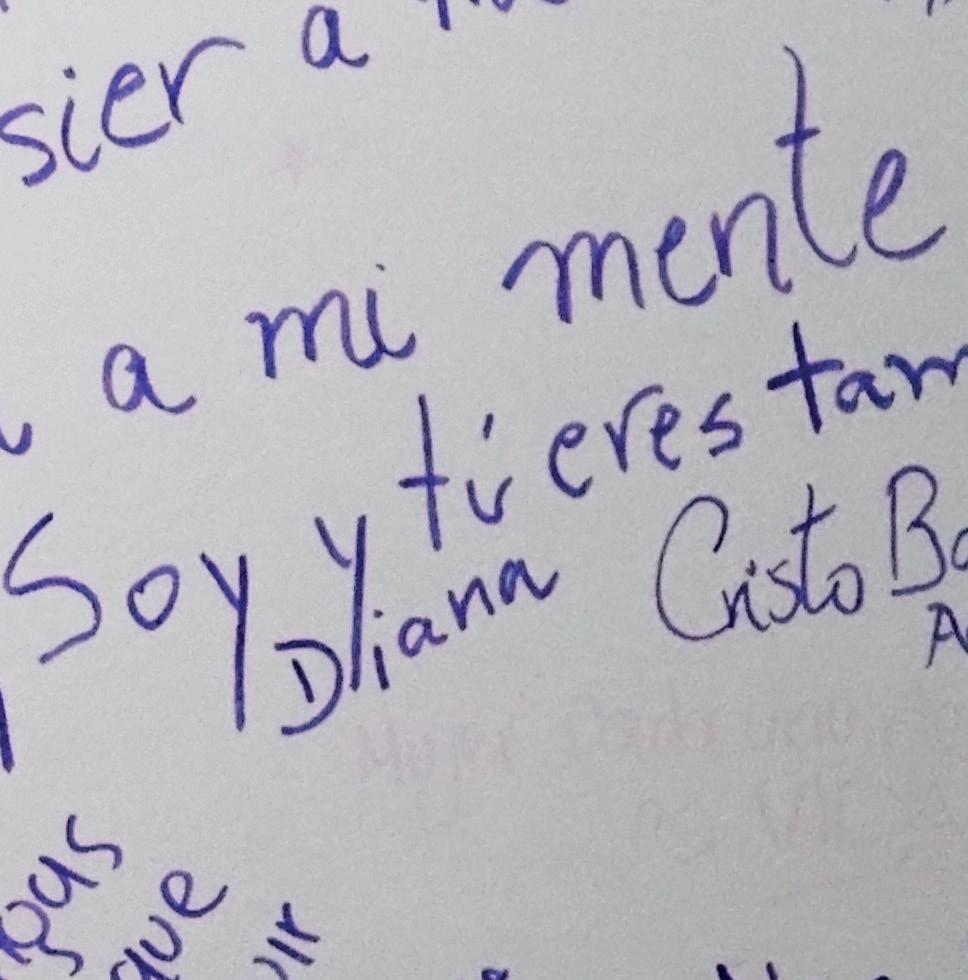 sier a
a mi mente
Soy y tú eres tam
Diana Cristo Ba
A
que